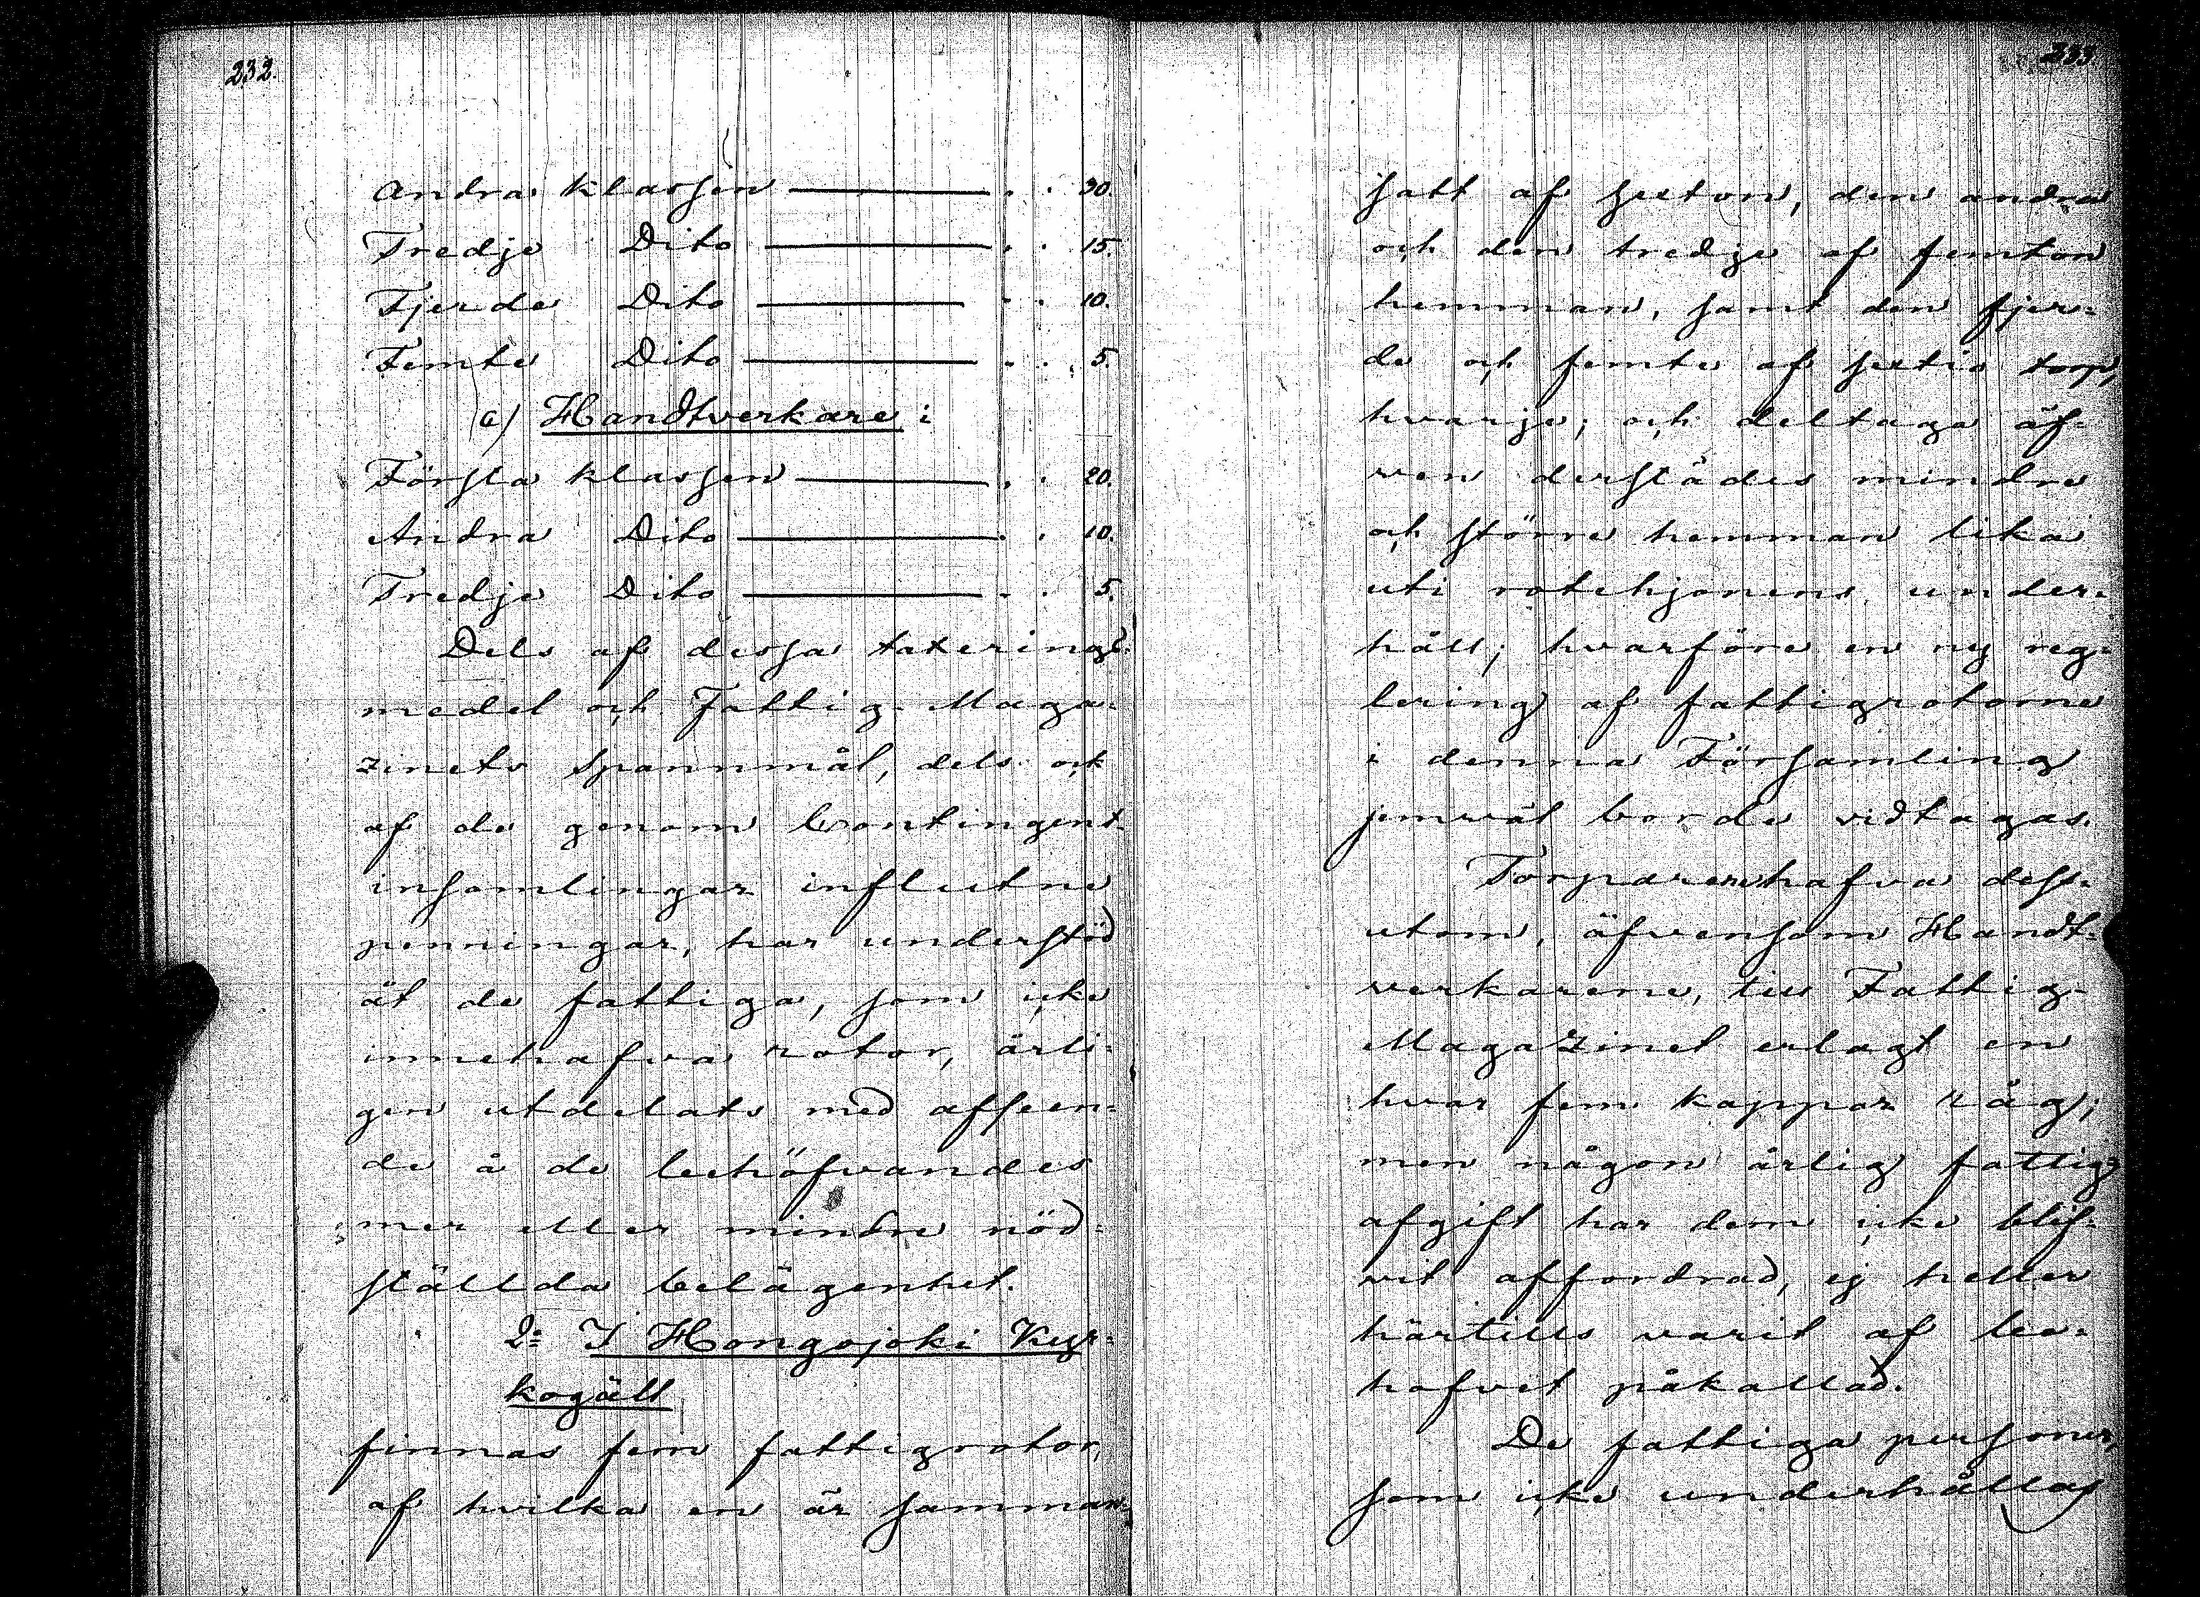 232.
Andra klassen — " " 30.
Tredje Dito — " " 15.
Fjerde Dito — " " 10.
Femte Dito — " " 5.
c) Handtverkare i
Första klassen — " " 20.
Andra Dito — " " 10.
Tredje Dito — " " 5.
Dels af dessa taxerings-
medel och Fattig-Maga-
zinets Spannmål, dels ock
af de genom Contingent-
insamlingar influtne
penningar, har understöd
åt de fattiga, som icke
innehafva rotor, årli-
gen utdelats med afseen-
de å de behöfvandes
mer eller mindre nöd-
ställda belägenhet.
2:o I Hongojoki Kyr-
kogäll
finnas fem fattigrotor,
af hvilka en är samman-
233
satt af sexton, den andra
och den tredje af femton
hemman, samt den fjer-
de och femte af sextio torp,
hvarje; och deltaga äf-
ven derstädes mindre
och större hemman lika
uti rotehjonens under-
håll; hvarföre en ny reg-
lering af fattigrotorne
i denna Församling
jemväl borde vidtagas.
Torparene hafva dess-
utom, äfvensom Handt-
verkarene, till Fattig-
Magazinet erlagt en
hvar fem kappar råg;
men någon årlig fattig-
afgift har dem icke blif-
vit affordrad, ej heller
härtills varit af be-
hofvet påkallad.
De fattiga personer,
som icke underhållas